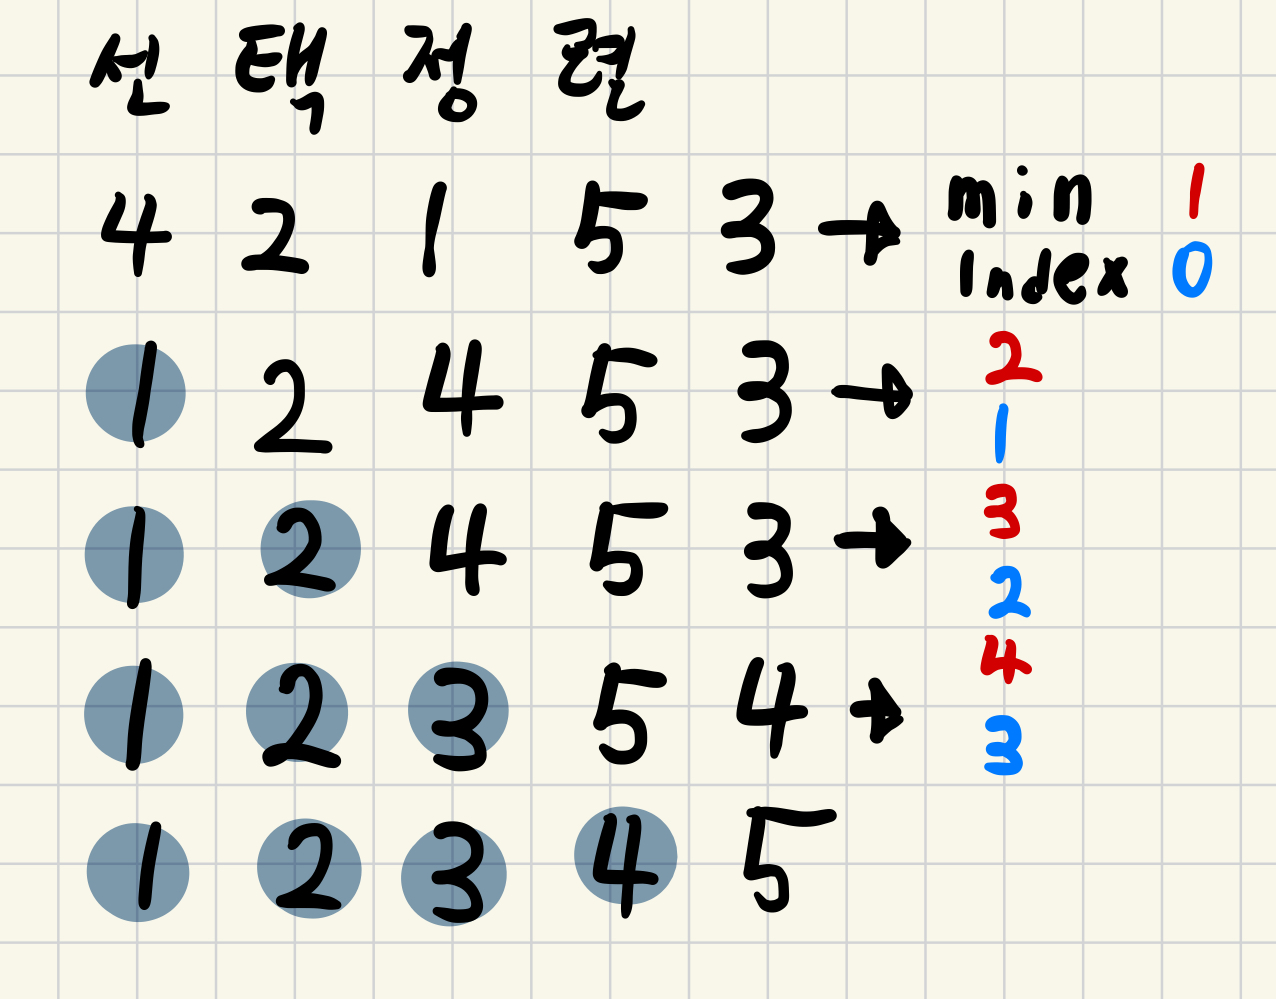 선택정렬
4 2 1 5 3 → min 1
Index 0
1 2 4 5 3 → 2
1
1 2 4 5 3 → 3
2
1 2 3 5 4 → 4
3
1 2 3 4 5